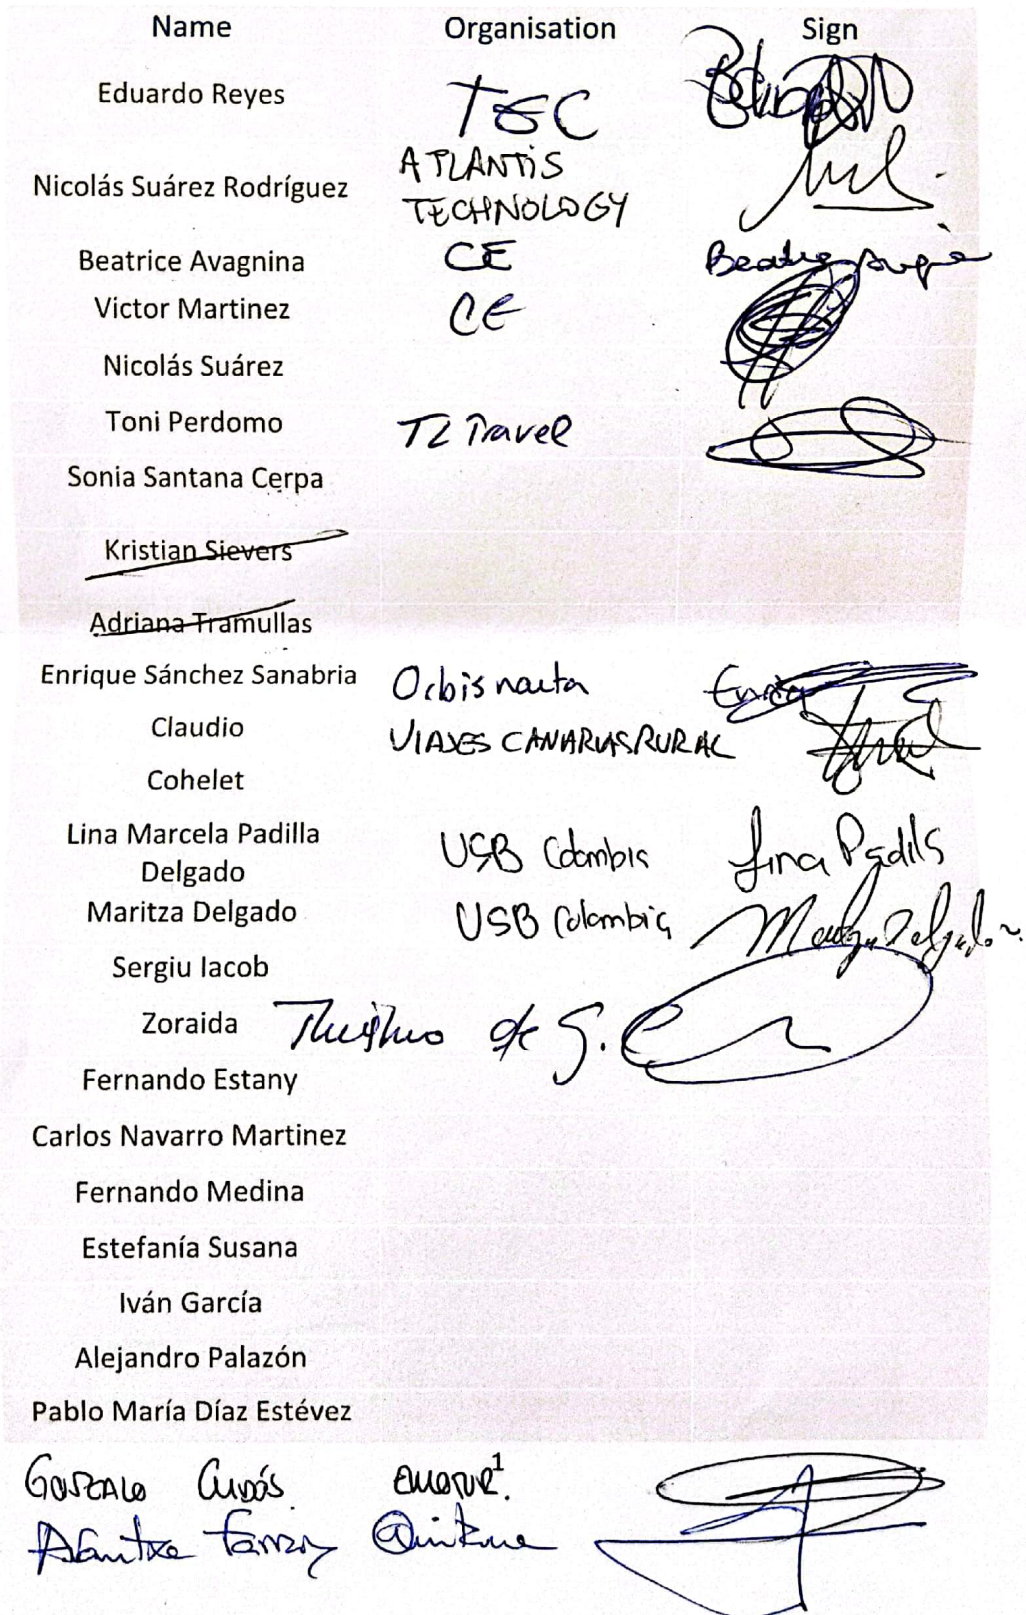 Name Organisation Sign
Eduardo Reyes TEC
Nicolás Suárez Rodríguez ATLANTIS TECHNOLOGY
Beatrice Avagnina CE
Victor Martinez CE
Nicolás Suárez
Toni Perdomo TL Travel
Sonia Santana Cerpa
Kristian Sievers
Adriana Tramullas
Enrique Sánchez Sanabria Orbisnauta
Claudio VIAJES CANARIASRURAL
Cohelet
Lina Marcela Padilla
Delgado USB Colombia Lina Padilla
Maritza Delgado USB Colombia
Sergiu Iacob
Zoraida
Fernando Estany
Carlos Navarro Martinez
Fernando Medina
Estefanía Susana
Iván García
Alejandro Palazón
Pablo María Díaz Estévez
GONZALO 1